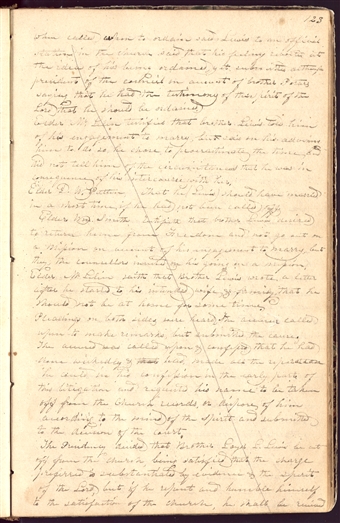 123
when called upon to ordain said Lewis to an official
station in the church said that his feelings revolted at
the idea of his being ordained, yet submitted to the
president of the council on account of brother Peters
saying that he had the testimony of the spirit of the
Lord that he should be ordained
Elder McLellin testified that brother Lewis told him
of his engagement to marry, but said on his advising
him to do so, he chose to procrastinate the time, and
did not tell him of the circumstances that he was in
consequence of his intercourse with her
Elder D. W. Patten that he, Lewis should have married
in a short time, if he had not been called off
Elder Wm. Smith testified that brother Lewis desired
to return home from Freedom and not go out on
a Mission on account of his engagement to marry, but
they, the counsellors insisted on his going on a mission
Elder McLellin saith that Brother Lewis wrote a letter
after he started to his intended wife & family, that he
should not be at home for some time,
Pleadings on both sides were heard. The accuser called
upon to make remarks, but submitted the cause.
The accused was called upon & confessed that he had
done wickedly &
he
made the confession in the early part of
this litigation and requests his name to be taken
off from the Church records, or dispose of him
according to the mind of the Spirit and submitted
to the decision of the court.
The Presidency decided that Brother Lewis be cut
off from the church, being satisfied that the charge
preferred is substantiated by evidence & the spirit
of the Lord, but if he repent and humble himself
to the satisfaction of the church, he shall be received